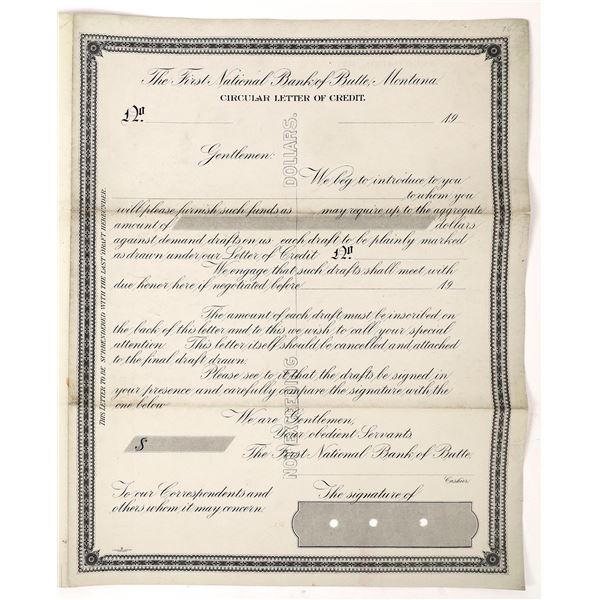 The First National Bank of Butte, Montana.
CIRCULAR LETTER OF CREDIT.
No. 19
Gentlemen:
We beg to introduce to you
to whom you
will please furnish such funds as may require up to the aggregate
amount of dollars
against demand drafts on us each draft to be plainly marked
as drawn under our Letter of Credit No.
We engage that such drafts shall meet with
due honor here if negotiated before 19
The amount of each draft must be inscribed on
the back of this letter and to this we wish to call your special
attention. This letter itself should be cancelled and attached
to the final draft drawn.
Please see to it that the drafts be signed in
your presence and carefully compare the signature with the
one below
We are Gentlemen,
Your obedient Servants
$
The First National Bank of Butte.
Cashier.
To our Correspondents and
others whom it may concern:
The signature of
THIS LETTER TO BE SURRENDERED WITH THE LAST DRAFT HEREUNDER.
NOT EXCEEDING DOLLARS.